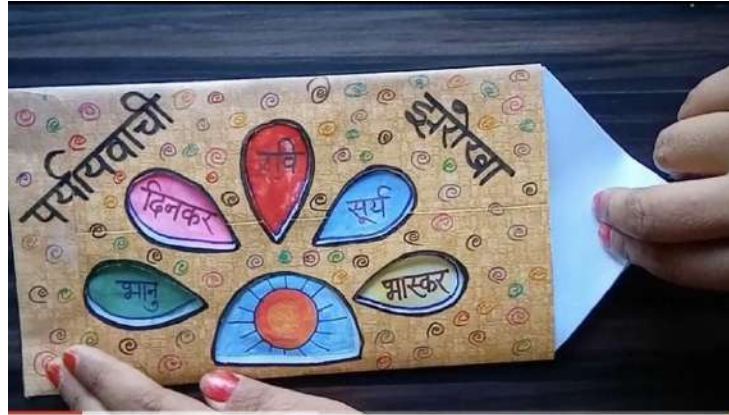 पर्यायवाची
झरोखा
रवि
दिनकर
सूर्य
भानु
भास्कर